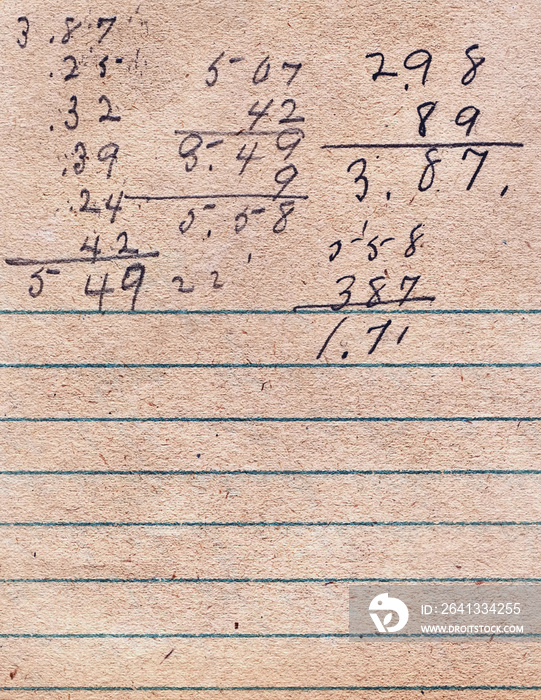 3.87
.25
.32
.39
.24
42
5 49
5 07
42
5.49
9
5.58
22
298
89
3.87.
558
387
1.71
ID: 2641334255
WWW.DROITSTOCK.COM